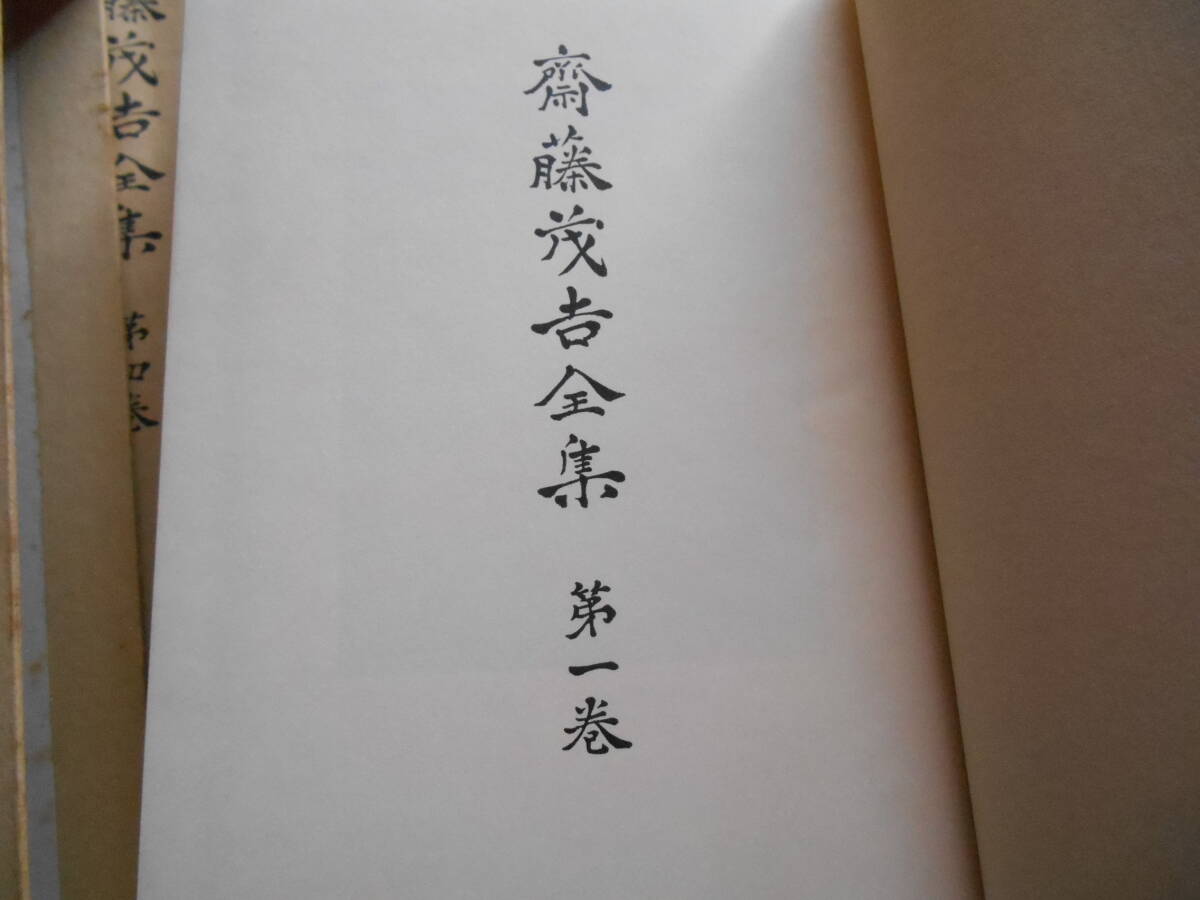 齋藤茂吉全集 第一巻
藤茂吉全集 第四巻